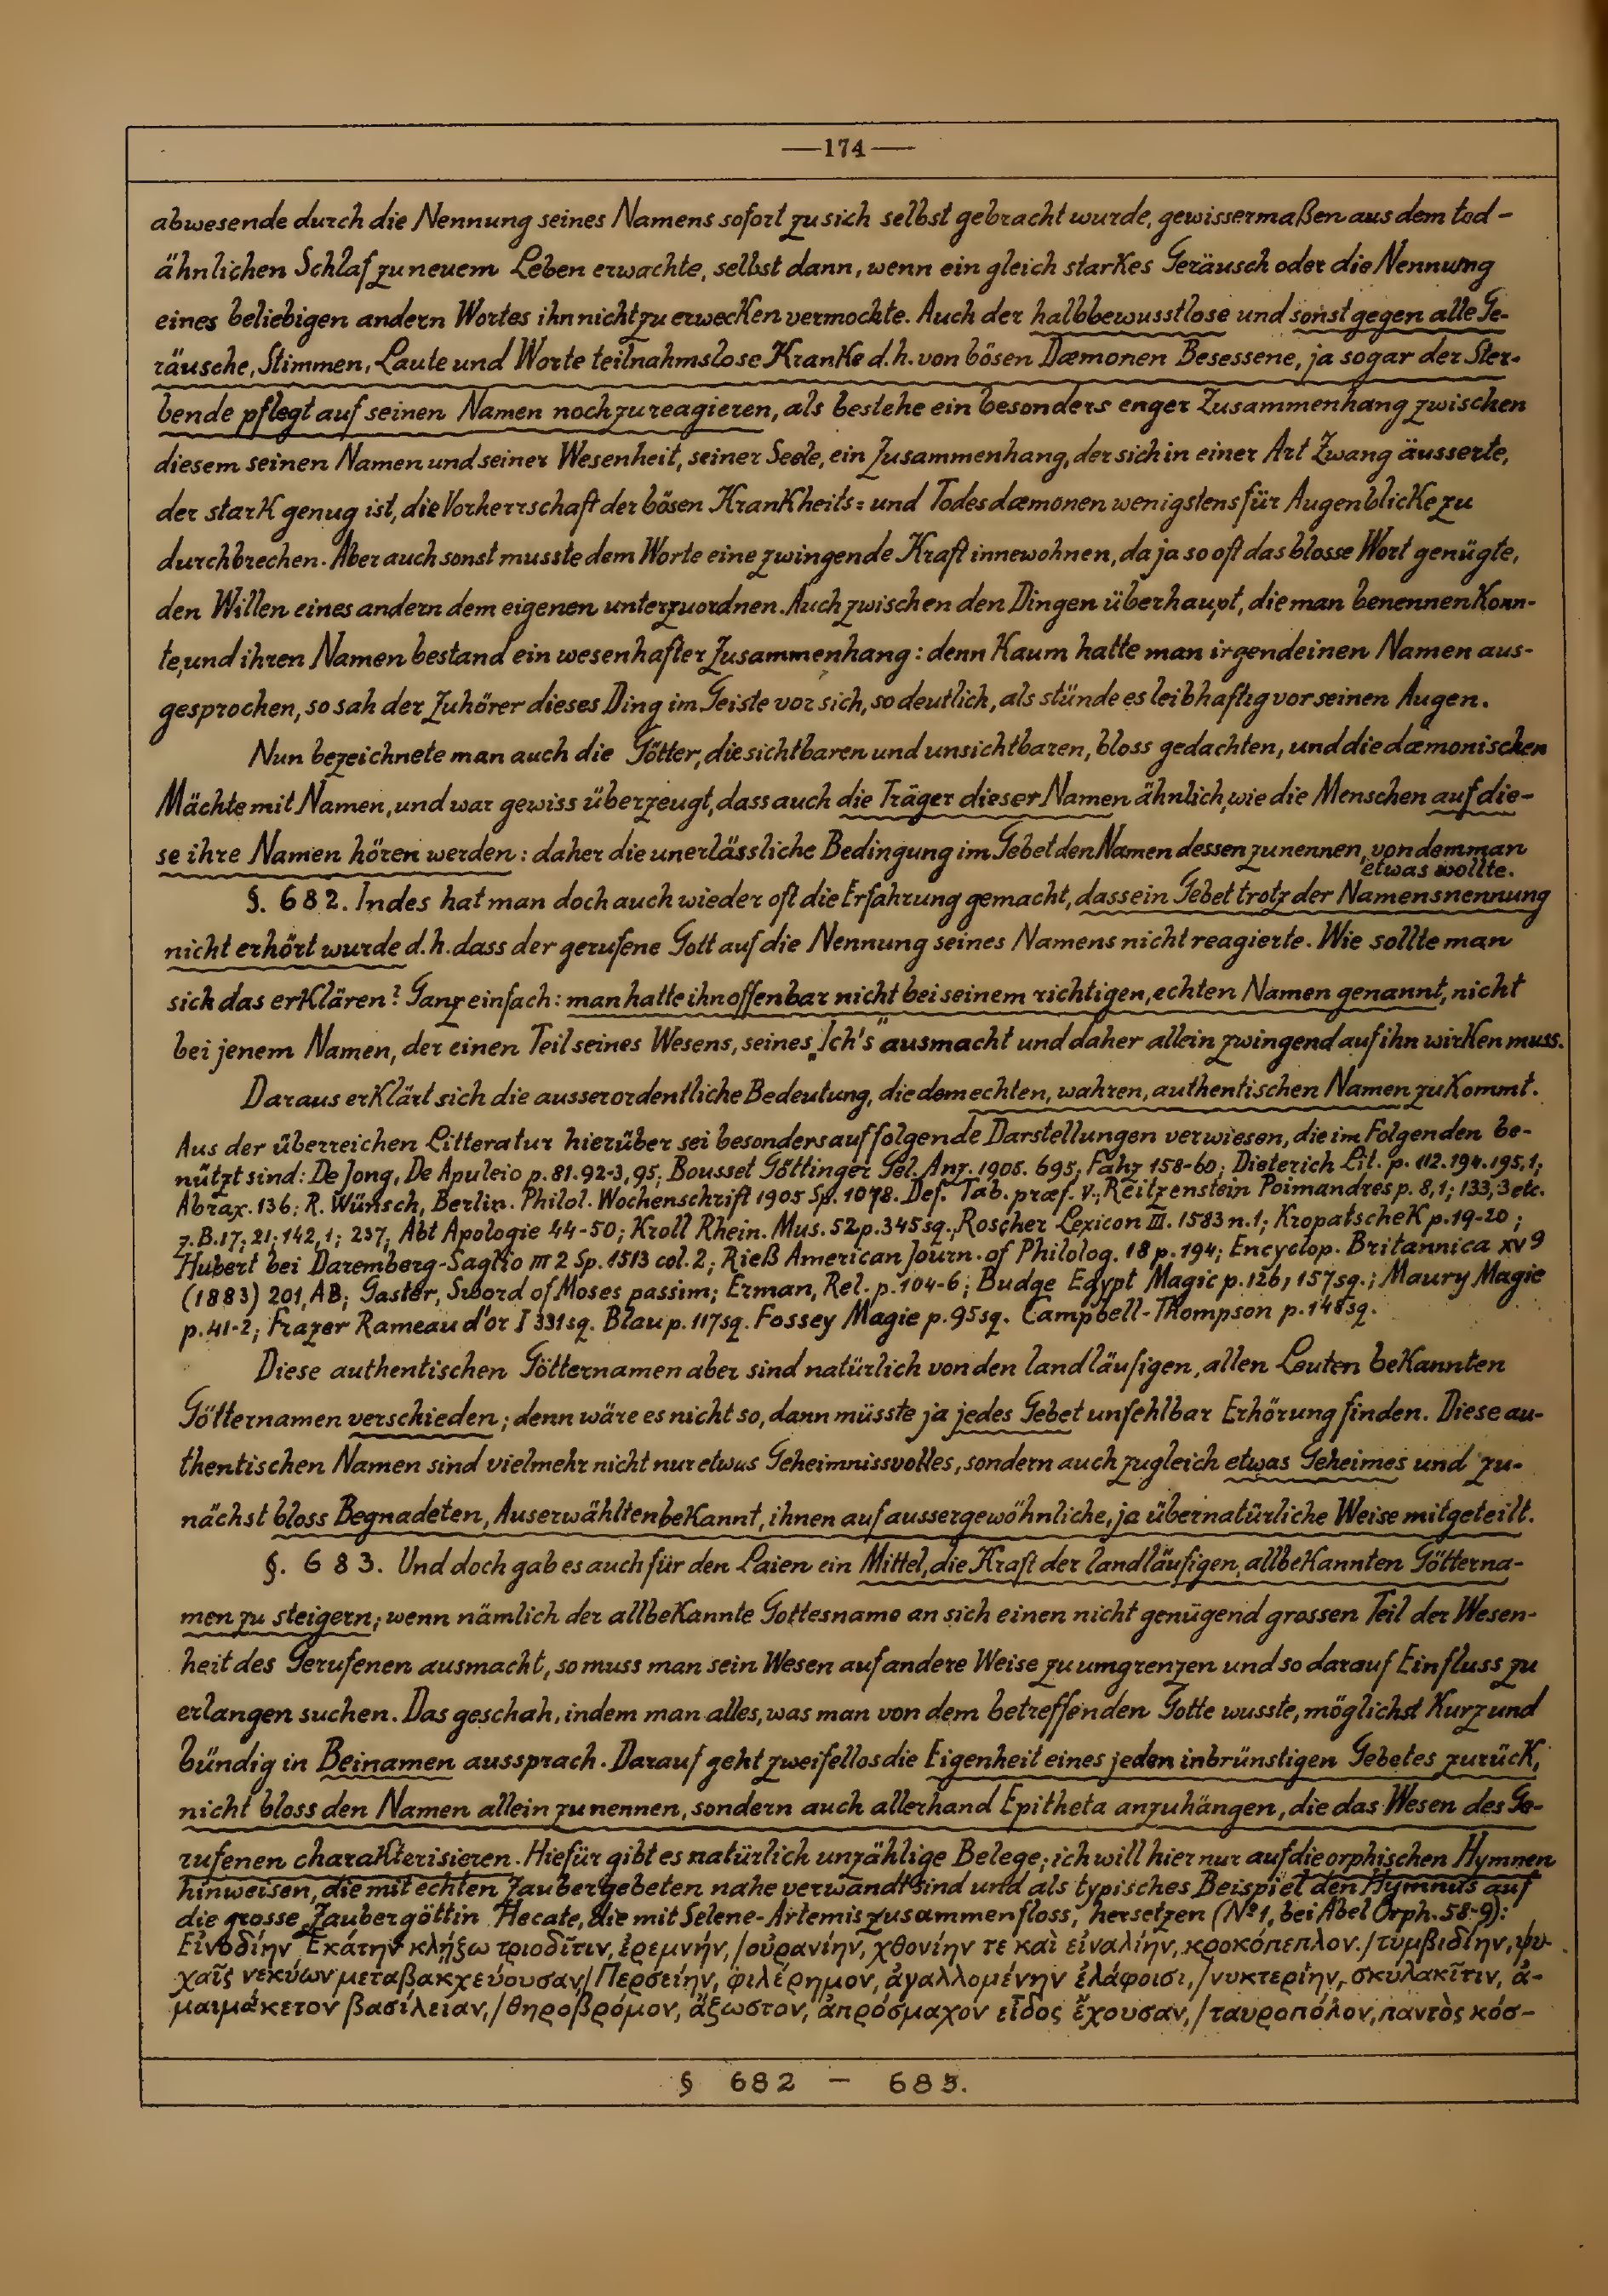 —174—
abwesende durch die Nennung seines Namens sofort zu sich selbst gebracht wurde, gewissermaßen aus dem tod-
ähnlichen Schlaf zu neuem Leben erwachte, selbst dann, wenn ein gleich starkes Geräusch oder die Nennung
eines beliebigen andern Wortes ihn nicht zu erwecken vermochte. Auch der halbbewusstlose und sonst gegen alle Ge-
räusche, Stimmen, Laute und Worte teilnahmslose Kranke d.h. von bösen Dæmonen Besessene, ja sogar der Ster-
bende pflegt auf seinen Namen noch zu reagieren, als bestehe ein besonders enger Zusammenhang zwischen
diesem seinen Namen und seiner Wesenheit, seiner Seele, ein Zusammenhang, der sich in einer Art Zwang äusserte,
der stark genug ist, die Vorherrschaft der bösen Krankheits= und Todesdæmonen wenigstens für Augenblicke zu
durchbrechen. Aber auch sonst musste dem Worte eine zwingende Kraft innewohnen, da ja so oft das blosse Wort genügte,
den Willen eines andern dem eigenen unterzuordnen. Auch zwischen den Dingen überhaupt, die man benennen konn-
te, und ihren Namen bestand ein wesenhafter Zusammenhang: denn kaum hatte man irgendeinen Namen aus-
gesprochen, so sah der Zuhörer dieses Ding im Geiste vor sich, so deutlich, als stünde es leibhaftig vor seinen Augen.
Nun bezeichnete man auch die Götter, die sichtbaren und unsichtbaren, bloss gedachten, und die dæmonischen
Mächte mit Namen, und war gewiss überzeugt, dass auch die Träger dieser Namen ähnlich, wie die Menschen auf die-
se ihre Namen hören werden: daher die unerlässliche Bedingung im Gebet den Namen dessen zu nennen, von dem man
etwas wollte.
§. 682. Indes hat man doch auch wieder oft die Erfahrung gemacht, dass ein Gebet trotz der Namensnennung
nicht erhört wurde d.h. dass der gerufene Gott auf die Nennung seines Namens nicht reagierte. Wie sollte man
sich das erklären? Ganz einfach: man hatte ihn offenbar nicht bei seinem richtigen, echten Namen genannt, nicht
bei jenem Namen, der einen Teil seines Wesens, seines „Ich's" ausmacht und daher allein zwingend auf ihn wirken muss.
Daraus erklärt sich die ausserordentliche Bedeutung, die dem echten, wahren, authentischen Namen zukommt.
Aus der überreichen Litteratur hierüber sei besonders auf folgende Darstellungen verwiesen, die im Folgenden be-
nützt sind: De Jong, De Apuleio p. 81. 92-3, 95; Bousset Göttinger Gel. Anz. 1905. 695; Fahz 158-60; Dieterich Lit. p. 112. 194. 195,1;
Abrax. 136; R. Wünsch, Berlin. Philol. Wochenschrift 1905 Sp. 1078. Def. Tab. præf. V.; Reitzenstein Poimandres p. 8,1; 133,3 etc.
z.B. 17; 21; 142,1; 237; Abt Apologie 44-50; Kroll Rhein. Mus. 52 p. 345 sq.; Roscher Lexicon III. 1583 n. 1; Kropatscheck p. 19-20;
Hubert bei Daremberg-Saglio III 2 Sp. 1513 col. 2; Rieß American Journ. of Philolog. 18 p. 194; Encyclop. Britannica XV 9
(1883) 201, AB; Gaster, Sword of Moses passim; Erman, Rel. p. 104-6; Budge Egypt Magic p. 126, 157 sq.; Maury Magie
p. 41-2; Frazer Rameau d'or I 331 sq. Blau p. 117 sq. Fossey Magie p. 95 sq. Campbell-Thompson p. 148 sq.
Diese authentischen Götternamen aber sind natürlich von den landläufigen, allen Leuten bekannten
Götternamen verschieden; denn wäre es nicht so, dann müsste ja jedes Gebet unfehlbar Erhörung finden. Diese au-
thentischen Namen sind vielmehr nicht nur etwas Geheimnissvolles, sondern auch zugleich etwas Geheimes und zu-
nächst bloss Begnadeten, Auserwählten bekannt, ihnen auf aussergewöhnliche, ja übernatürliche Weise mitgeteilt.
§. 683. Und doch gab es auch für den Laien ein Mittel, die Kraft der landläufigen, allbekannten Götterna-
men zu steigern; wenn nämlich der allbekannte Gottesname an sich einen nicht genügend grossen Teil der Wesen-
heit des Gerufenen ausmacht, so muss man sein Wesen auf andere Weise zu umgrenzen und so darauf Einfluss zu
erlangen suchen. Das geschah, indem man alles, was man von dem betreffenden Gotte wusste, möglichst kurz und
bündig in Beinamen aussprach. Darauf geht zweifellos die Eigenheit eines jeden inbrünstigen Gebetes zurück,
nicht bloss den Namen allein zu nennen, sondern auch allerhand Epitheta anzuhängen, die das Wesen des Ge-
rufenen charakterisieren. Hiefür gibt es natürlich unzählige Belege; ich will hier nur auf die orphischen Hymnen
hinweisen, die mit echten Zaubergebeten nahe verwandt sind und als typisches Beispiel den Hymnus auf
die grosse Zaubergöttin Hecate, die mit Selene-Artemis zusammenfloss, hersetzen (No 1, bei Abel Orph. 58-9):
Εἰνοδίην Ἑκάτην κλήξω τριοδῖτιν, ἐρεμνήν, /οὐρανίην, χθονίην τε καὶ εἰναλίην, κροκόπεπλον./ τυμβιδίην, ψυ-
χαῖς νεκύων μεταβακχεύουσαν/ Περσείην, φιλέρημον, ἀγαλλομένην ἐλάφοισι, /νυκτερίην, σκυλακῖτιν, ἀ-
μαιμάκετον βασίλειαν, /θηροβρόμον, ἄζωστον, ἀπρόσμαχον εἶδος ἔχουσαν, /ταυροπόλον, παντὸς κόσ-
§ 682 – 683.